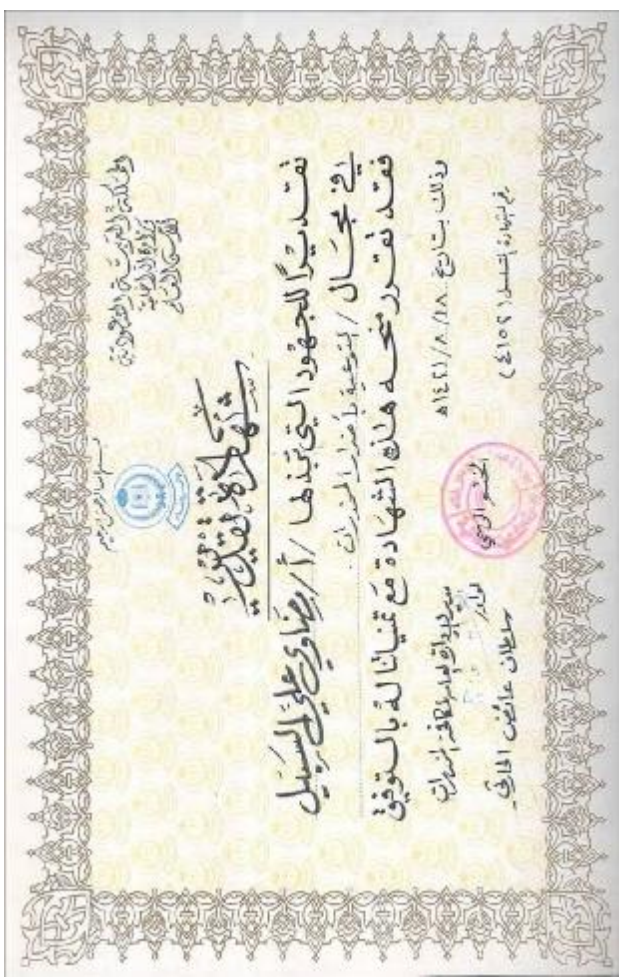 بسم الله الرحمن الرحيم
المملكة العربية السعودية
وزارة الداخلية
الأمن العام
شهادة تقدير
تقديراً للجهود التي تبذلها / أ/ مضاوي علي السبيل
في مجال / التوعية بأضرار المخدرات.
فقد تقرر منحه هذه الشهادة مع تمنياتنا له بالتوفيق
وذلك بتاريخ ١٨/٨/١٤٢١هـ
رقم الشهادة المتسلسل (٤١٥٢)
مدير الإدارة العامة لمكافحة المخدرات
الختم الرسمي
سلطان عائض الحارثي